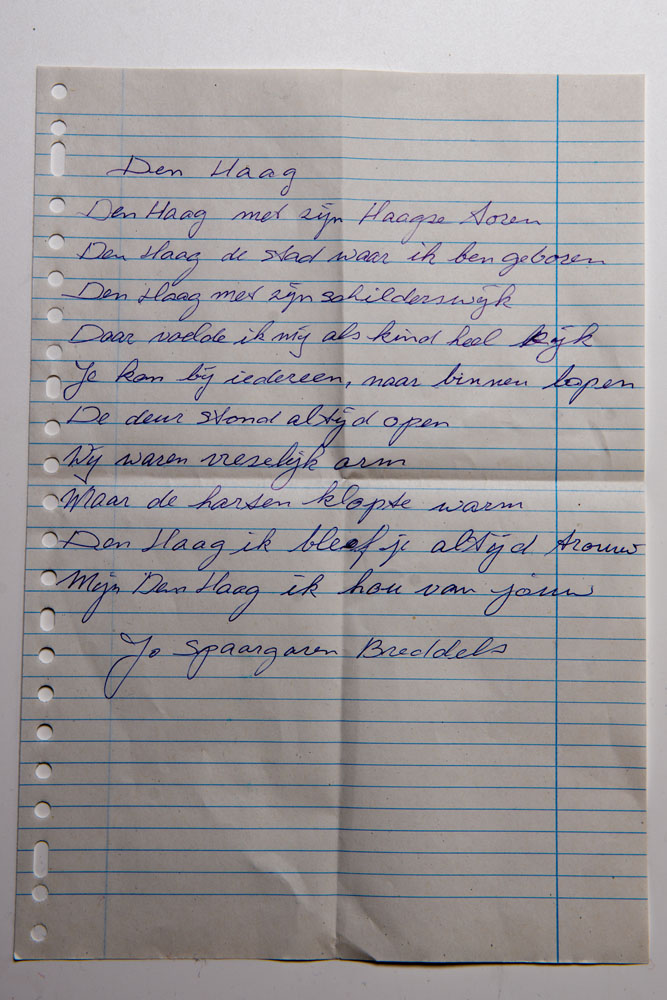 Den Haag
Den Haag met zijn Haagse toren
Den Haag de stad waar ik ben geboren
Den Haag met zijn schilderswijk
Daar voelde ik mij als kind heel rijk
Je kon bij iedereen, naar binnen lopen
De deur stond altijd open
Wij waren vreselijk arm
Maar de harten klopte warm
Den Haag ik bleef je altijd trouw
Mijn Den Haag ik hou van jouw
Jo Spaargaren Breddels